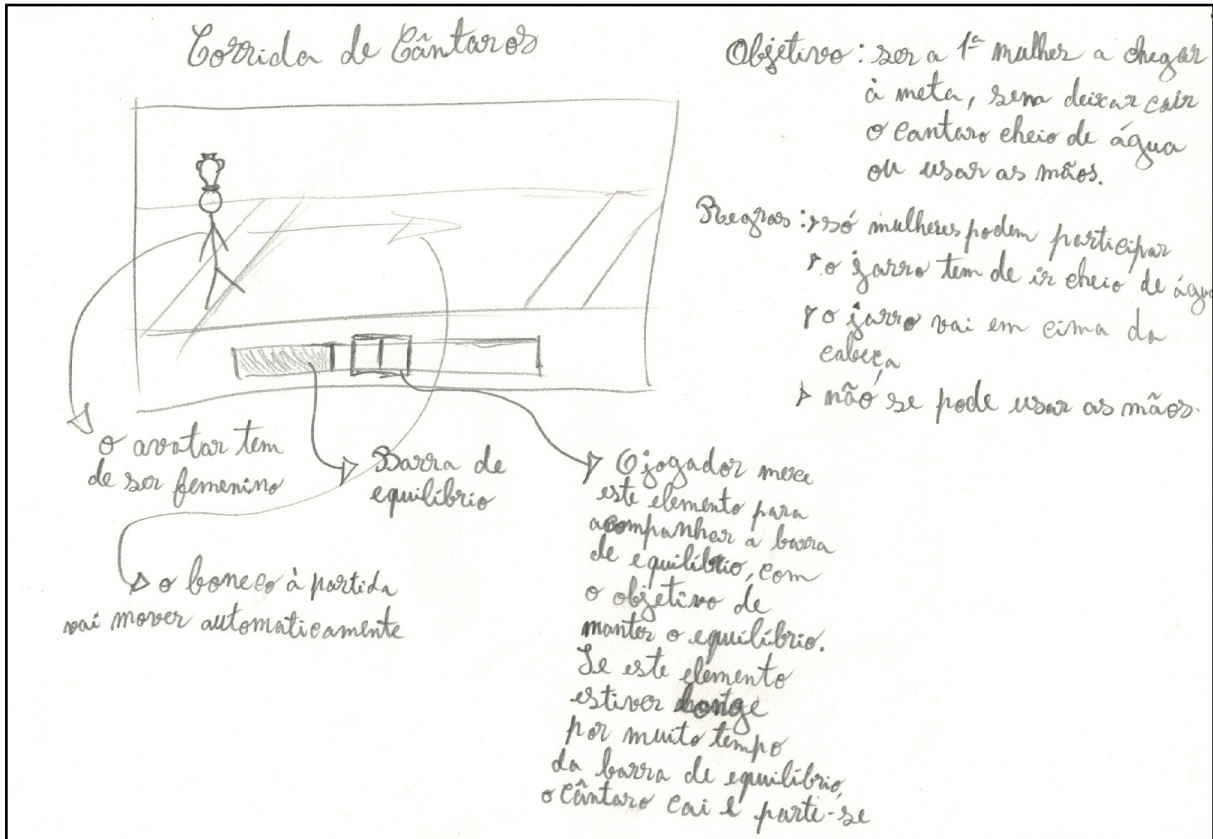 Corrida de Cântaros
Objetivo: ser a 1ª mulher a chegar
à meta, sem deixar cair
o cantaro cheio de água
ou usar as mãos.
Regras: só mulheres podem participar
o jarro tem de ir cheio de água
o jarro vai em cima da
cabeça
não se pode usar as mãos.
o avatar tem
de ser femenino
Barra de
equilíbrio
o boneco à partida
vai mover automaticamente
O jogador move
este elemento para
acompanhar a barra
de equilíbrio, com
o objetivo de
manter o equilíbrio.
Se este elemento
estiver longe
por muito tempo
da barra de equilíbrio,
o cântaro cai e parte-se